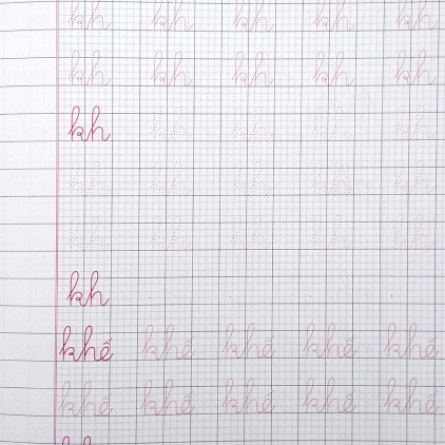 kh kh kh kh kh
kh kh kh kh kh
kh kh kh kh kh
kh kh kh kh kh
kh kh kh kh kh
kh
khế khế khế khế khế
khế khế khế khế khế